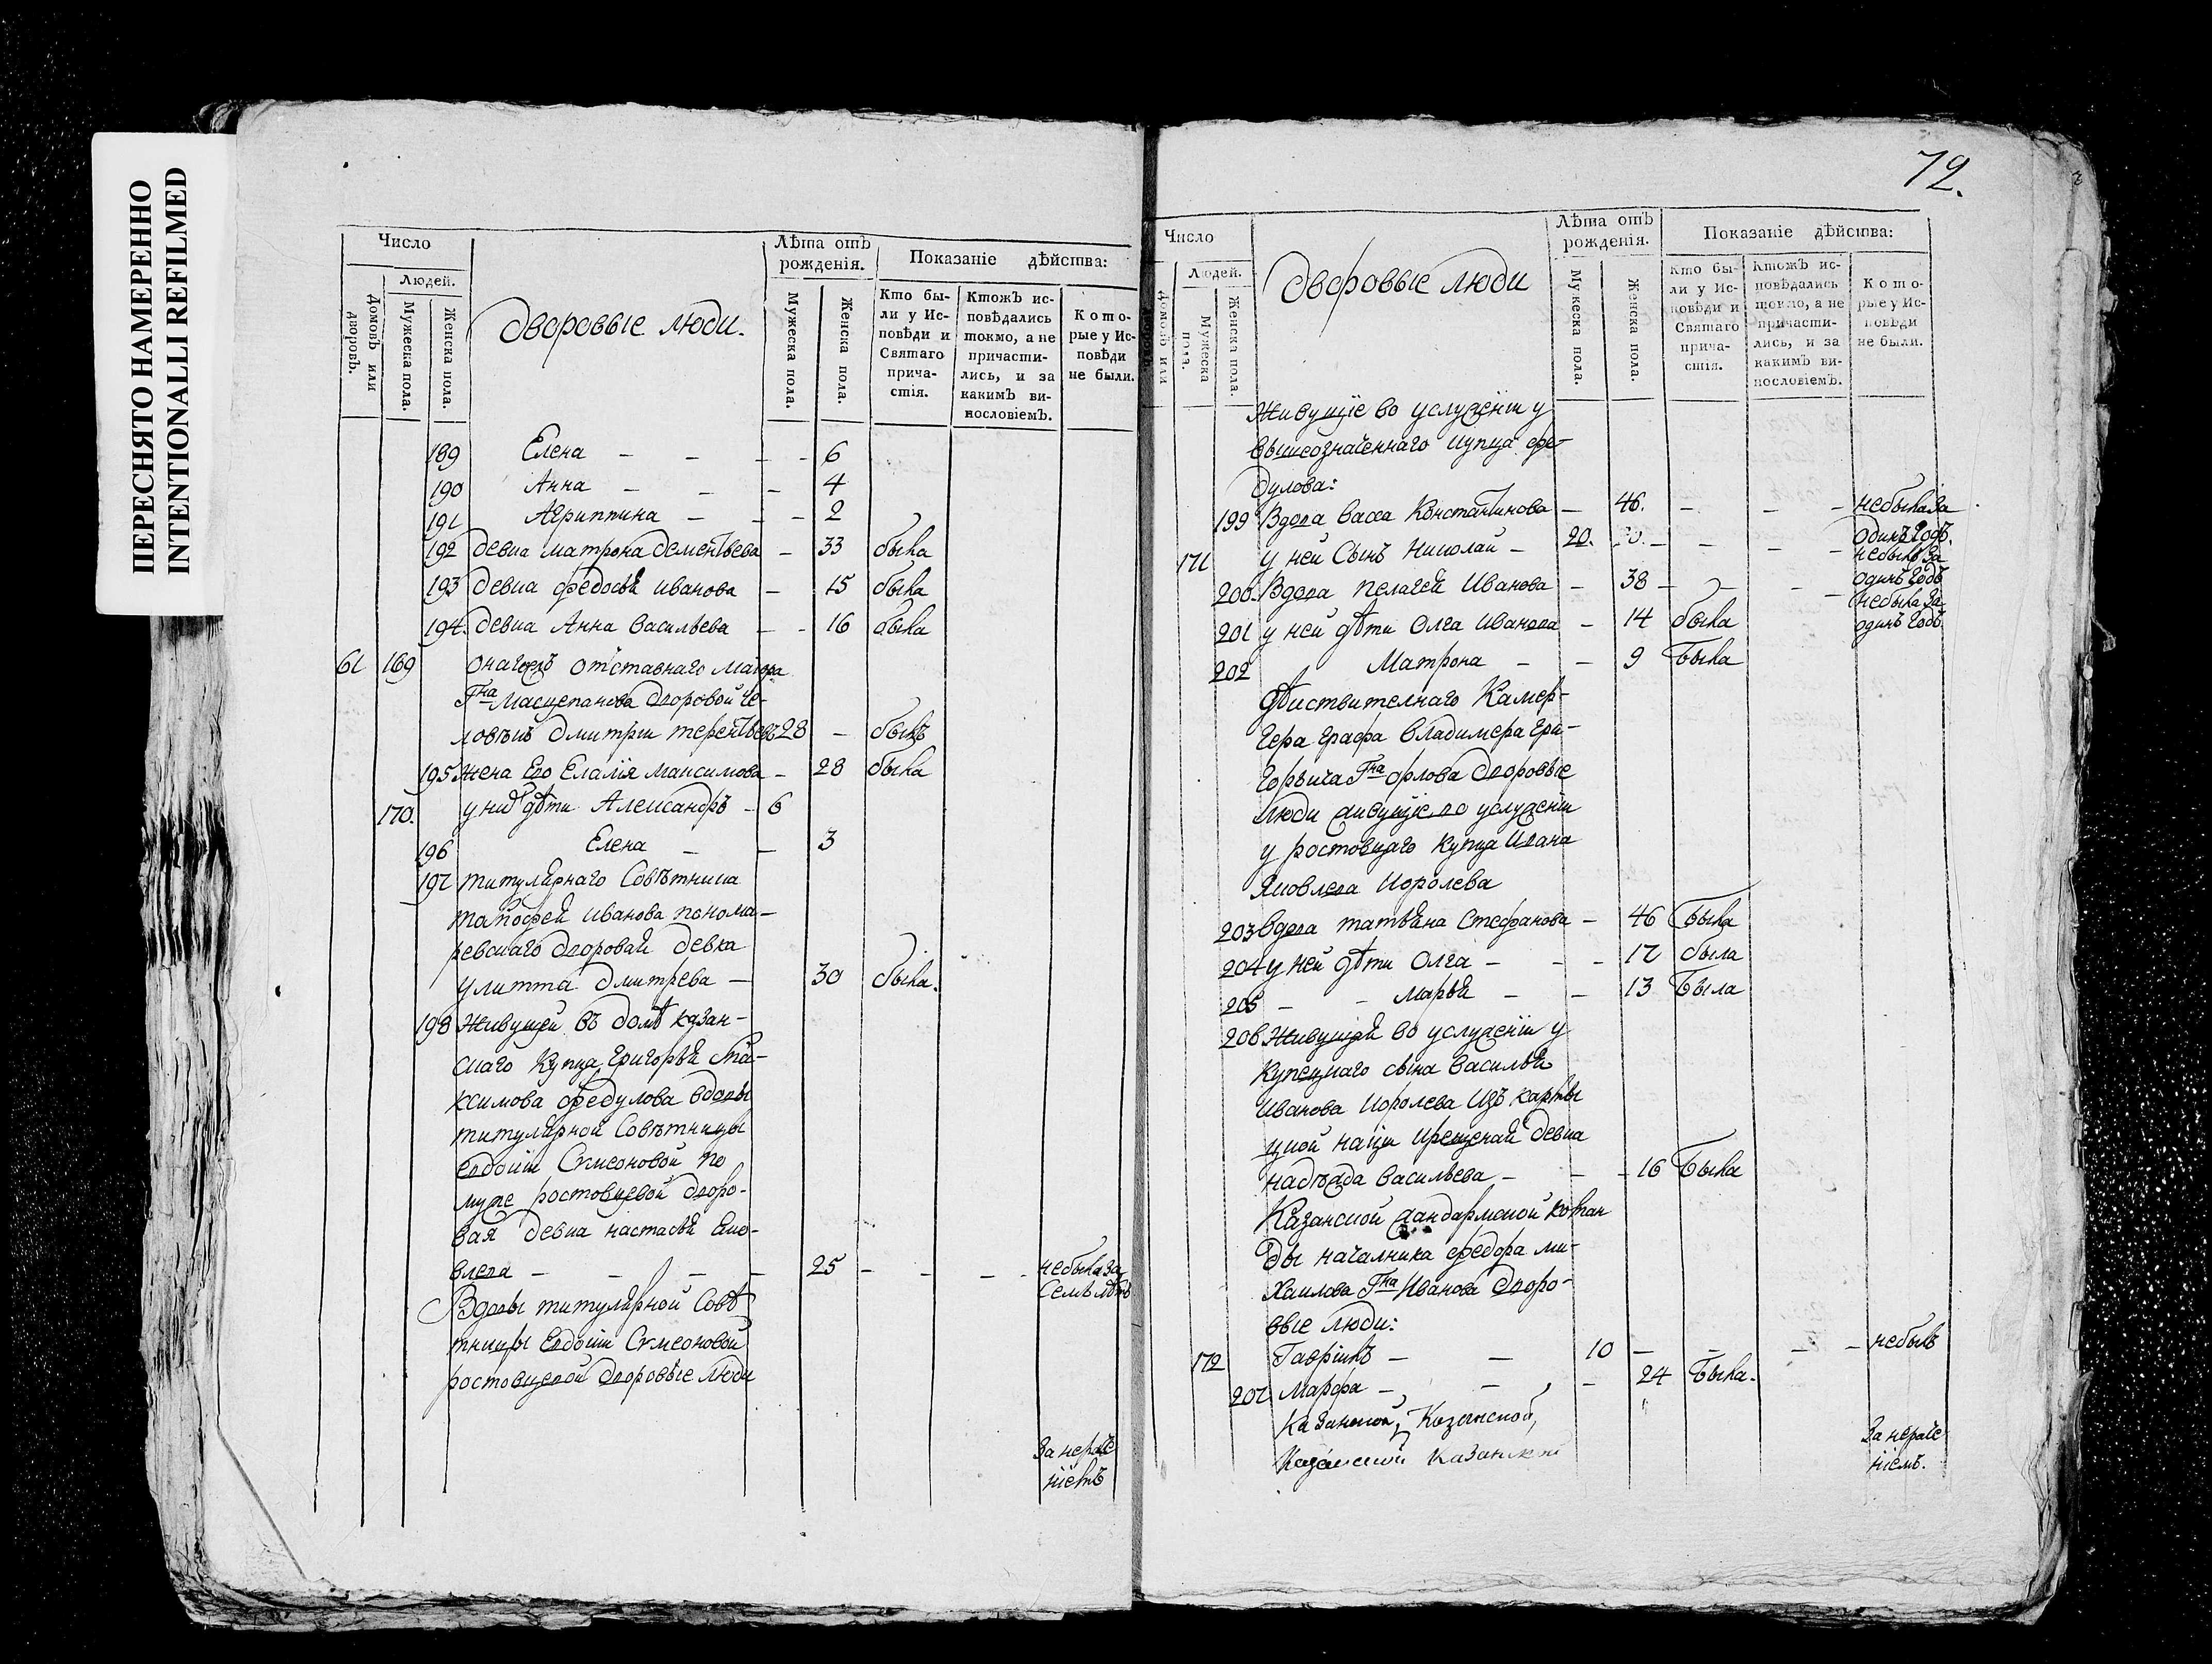 ПЕРЕСНЯТО НАМЕРЕННО
INTENTIONALLI REFILMED
Число
Людей.
Домовъ или дворовъ.
Мужеска пола.
Женска пола.
Дворовые люди.
Лѣта отъ рожденія.
Мужеска пола.
Женска пола.
Показаніе дѣйства:
Кто были у Исповѣди и Святаго причастія.
Ктожъ исповѣдались токмо, а не причастились, и за какимъ винословіемъ.
Которые у Исповѣди не были.
189 Елена – – – – 6
190 Анна – – – 4
191 Агриппина – – – 2
192 девка матрона дементьева – 33 была
193 девка федосья иванова – 15 была
194. девка Анна васильева – – 16 была
61 169 отставнаго маиора
Гна дворовой че-
ловѣкъ дмитри терентьевъ 28 – былъ
195 жена его максимова – 28 была
170. у них дѣти Александръ – 6
196 Елена – – 3
197 титулярнаго совѣтника
иванова понома-
ревскаго дворовая девка
улитта дмитрева – 30 была.
198 Живущей въ домѣ казан-
скаго купца григорья ма-
ксимова федулова вдовы
титулярной совѣтницы
евдокіи симеоновой по
муже ростовцевой дворо-
вая девка настасья яко-
влева – – – – 25 – – – не была за
семь лѣтъ
Вдовы титулярной совѣ
тницы евдокіи симеоновой
ростовцевой дворовые люди
За нераче
ніемъ
72.
Число
Людей.
Домовъ или
Мужеска пола.
Женска пола.
Дворовые люди
Лѣта отъ рожденія.
Мужеска пола.
Женска пола.
Показаніе дѣйства:
Кто были у Исповѣди и Святаго причастія.
Ктожъ исповѣдались токмо, а не причастились, и за какимъ винословіемъ.
Которые у Исповѣди не были.
Живущіе во услуженіи у
вышеозначеннаго купца фе-
дулова:
199 Вдова васса Константинова – 46. – – – не была за
одинъ годъ.
171 у ней сынъ николай – 20. – – – – не былъ за
одинъ годъ
200. Вдова пелагея Иванова – 38 – – – – не была за
одинъ годъ
201 у ней дѣти Олга Иванова – 14 была
202 Матрона – – 9 была
дѣиствителнаго Камер-
гера графа владимера гри-
горьича Гна орлова дворовые
люди живущіе во услуженіи
у ростовцкаго купца Ивана
Яковлева королева
203 вдова татьяна Стефанова – 46 была
204 у ней дѣти Олга – – – 17 была
205 – – марья – – 13 была
206 Живущая во услуженіи у
купецкаго сына василья
иванова королева изъ
цкой націи крещеная девка
надѣжда васильева – – – 16 была
Казанской жандармской коман
ды началника федора ми-
хаилова Гна Иванова дворо-
вые люди:
172 Гаврилъ – – 10 – – – – не былъ
207 Марфа – – – 24 была.
Казанской, Казанской,
Казанской Казанской
За нераче
ніемъ.